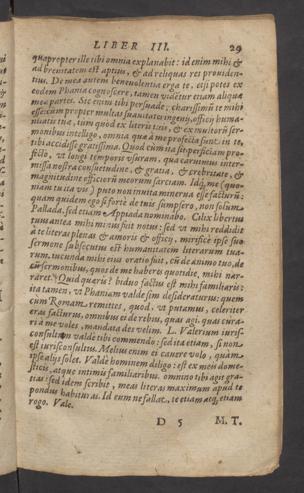 LIBER III. 29
quapropter ille tibi omnia explanabit: id enim mihi &
ad brevitatem est aptius, & ad reliquas res providen-
tius. De mea autem benevolentia erga te, etsi potes ex
eodem Phania cognoscere, tamen videtur etiam aliqua
meæ partes. Sic enim tibi persuade, charissimum te mihi
esse, cum propter multas suavitates ingenij, officij huma-
nitatis tuæ, tum quod ex literis tuis, & ex multorū ser-
monibus intelligo, omnia quæ à me profecta sunt in te,
tibi accidisse gratissima. Quod cùm ita sit, perficiam pro-
fectò, ut longi temporis usuram, qua caruimus inter-
missa nostra consuetudine, & gratia, & crebritate, &
magnitudine officiorū meorum sarciam. Idq; me (quo-
niam tu ita vis) puto non invita minerva esse facturū:
quam quidem ego si fortè de tuis sumpsero, non solum
Pallada, sed etiam Appiada nominabo. Cilix libertus
tuus antea mihi minus fuit notus: sed ut mihi reddidit
à te literas plenas & amoris & officij, mirificè ipse suo
sermone subsecutus est humanitatem literarum tua-
rum. iucunda mihi eius oratio fuit, cū de animo tuo, de
sermonibus, quos de me haberes quotidie, mihi nar-
raret. Quid quæris? biduo factus est mihi familiaris:
ita tamen, ut Phaniam valde sim desideraturus: quem
cum Romam remittes, quod, ut putamus, celeriter
eras facturus, omnibus ei de rebus, quas agi, quas cura-
ri à me voles, mandata des velim. L. Valerium iuris-
consultum valdè tibi commendo: sed ita etiam, si non
est iurisconsultus. Melius enim ei cavere volo, quàm
ipse alijs solet. Valdè hominem diligo: est ex meis dome-
sticis, atque intimis familiaribus. omnino tibi agit gra-
tias: sed idem scribit, meas literas maximum apud te
pondus habituras. Id eum ne fallat, te etiam atq; etiam
rogo. Vale.
D 5 M. T.